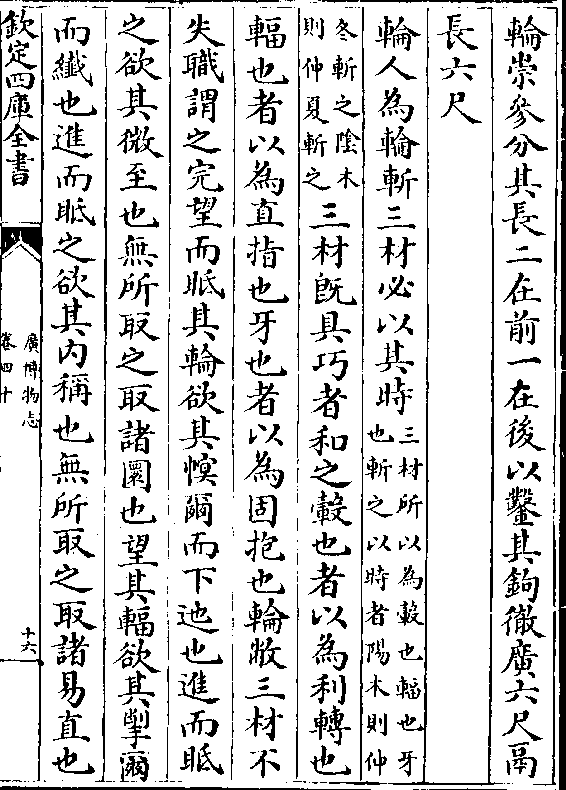 輪崇參分其長二在前一在後以鑿其鉤徹廣六尺鬲
長六尺
輪人為輪斬三材必以其時三材所以為轂也輻也牙
也斬之以時者陽木則仲
冬斬之陰木
則仲夏斬之三材既具巧者和之轂也者以為利轉也
輻也者以為直指也牙也者以為固抱也輪敝三材不
失職謂之完望而眡其輪欲其幎爾而下迆也進而眡
之欲其微至也無所取之取諸圜也望其輻欲其掣爾
而纖也進而眡之欲其肉稱也無所取之取諸易直也
欽定四庫全書
廣博物志
卷四十
十六